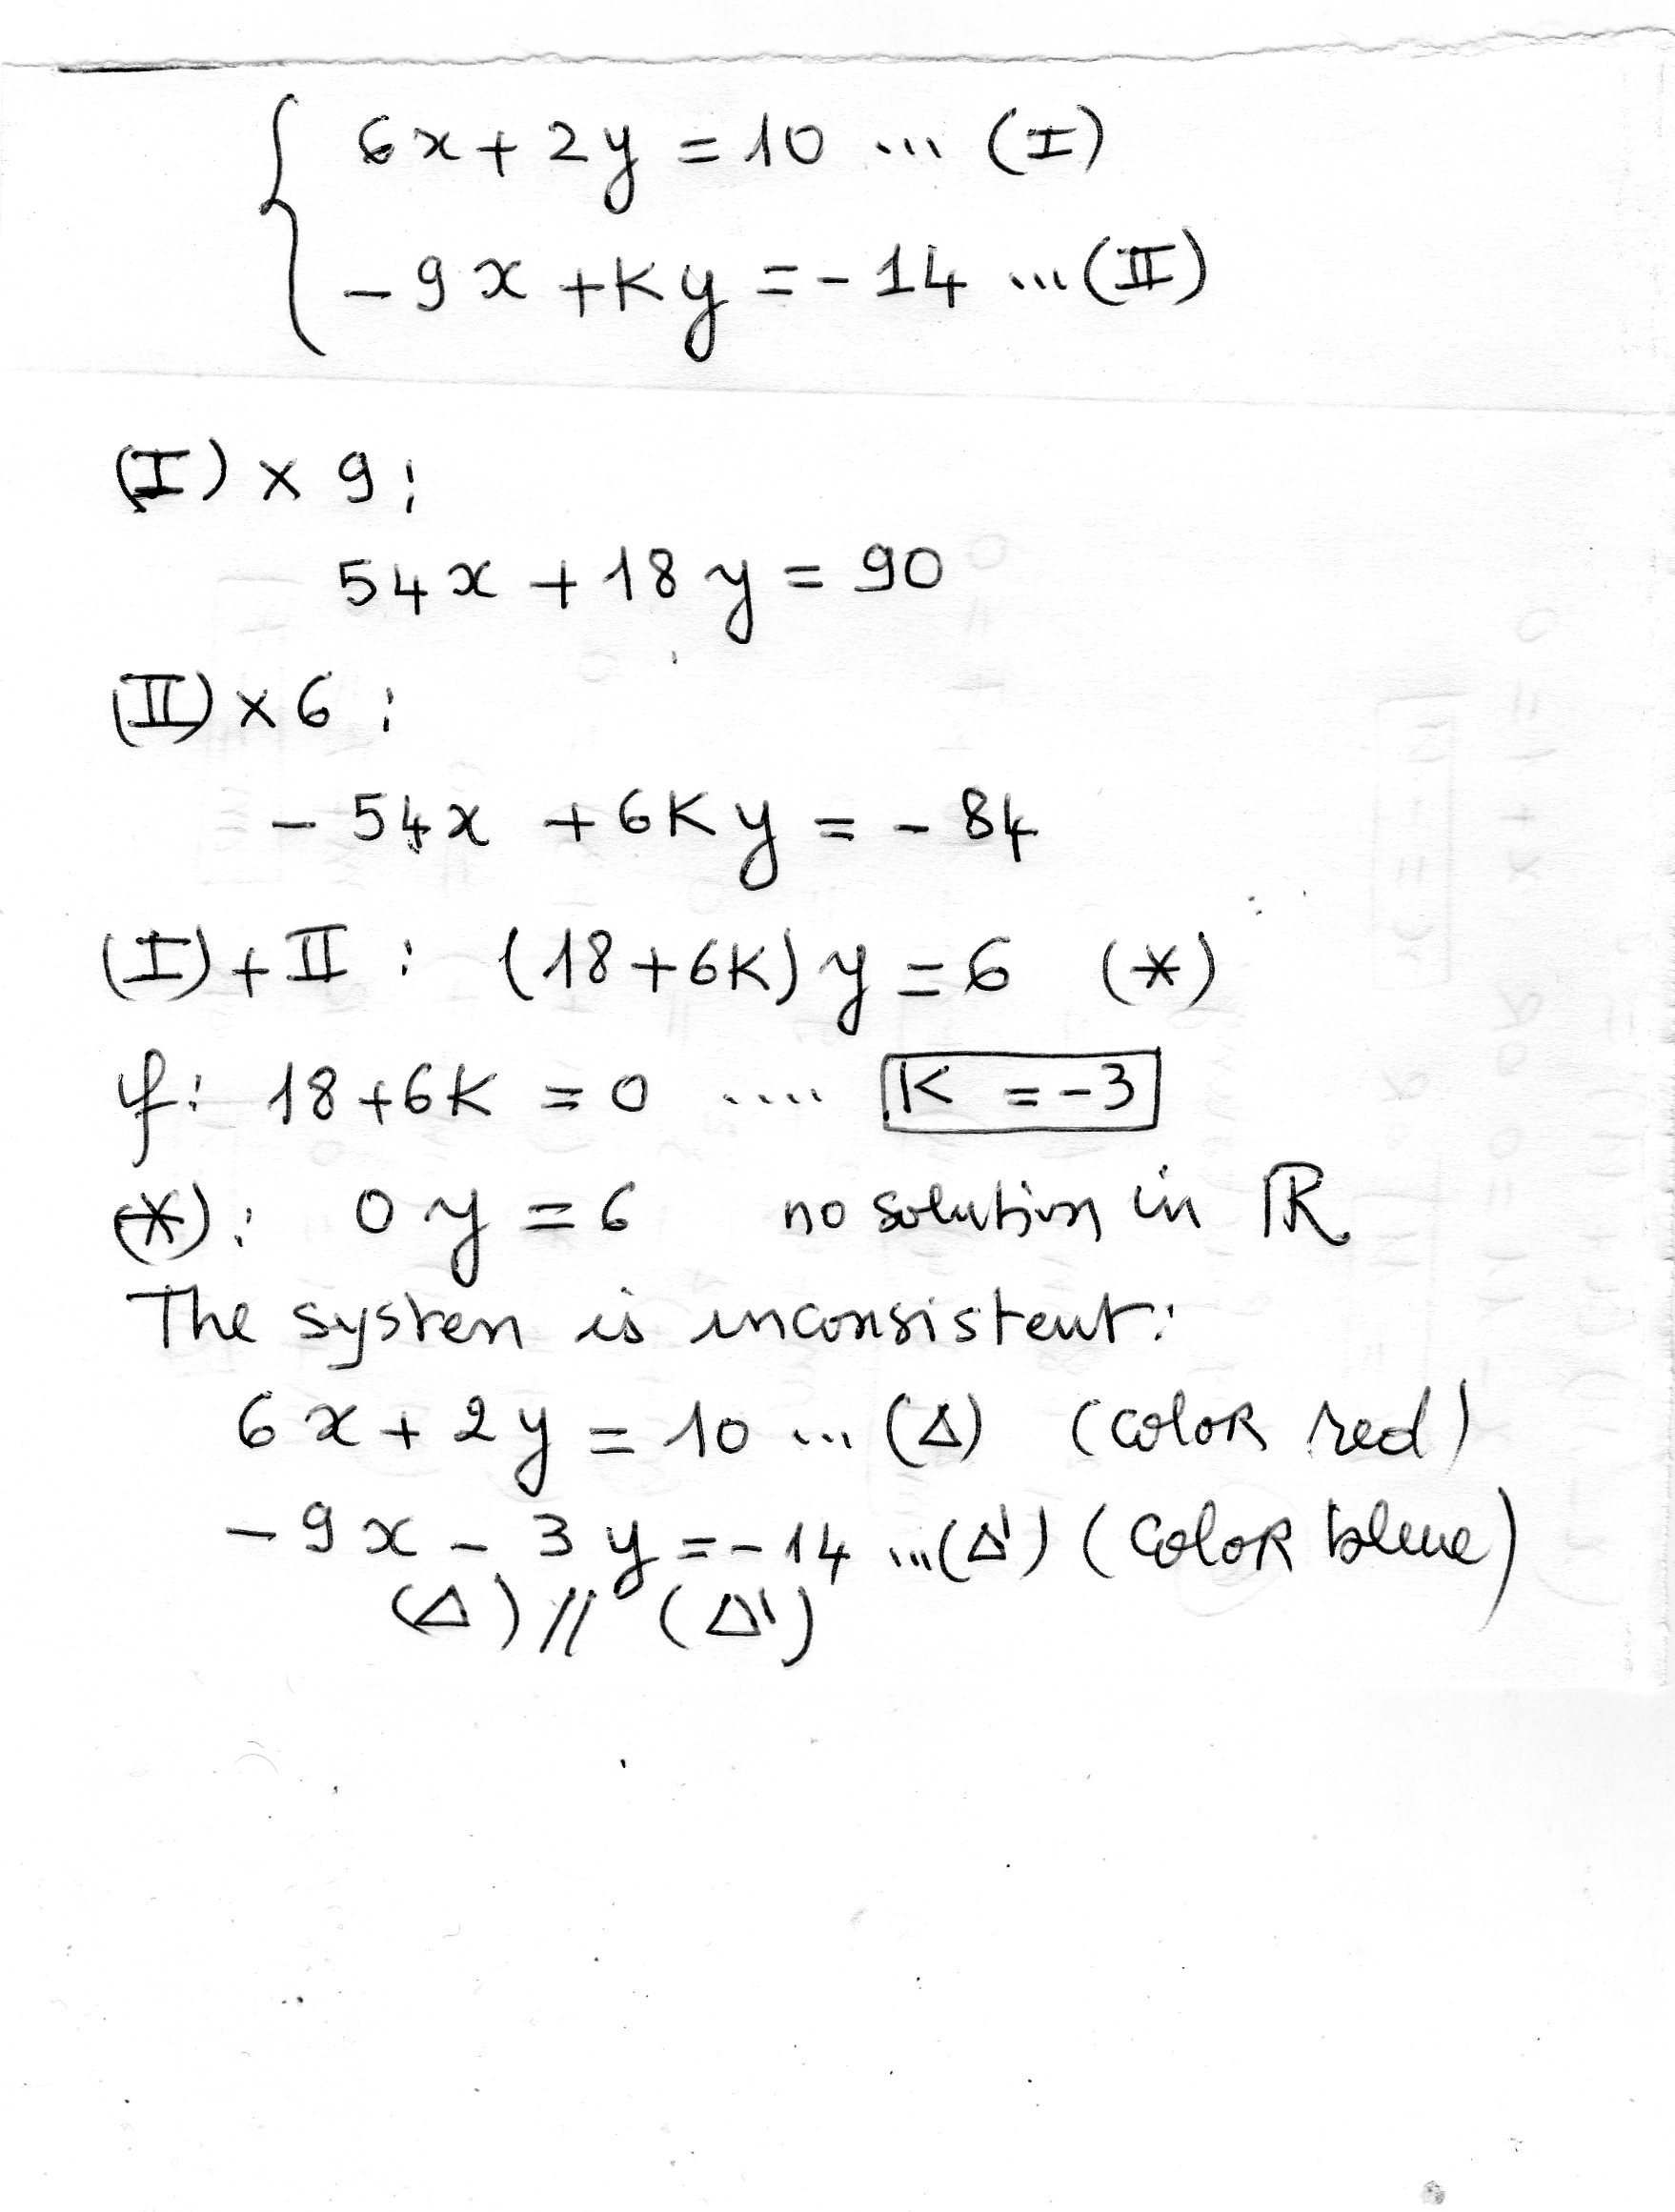 6x + 2y = 10 ... (I)
-9x + Ky = -14 ... (II)
(I) x 9 :
54x + 18y = 90
(II) x 6 :
- 54x + 6Ky = - 84
(I) + II : (18+6K) y = 6 (*)
if: 18+6K = 0 .... K = -3
(*) : 0 y = 6 no solution in ℝ
The system is inconsistent:
6x + 2y = 10 ... (Δ) (color red)
-9x - 3y = -14 ... (Δ') (color blue)
(Δ) // (Δ')